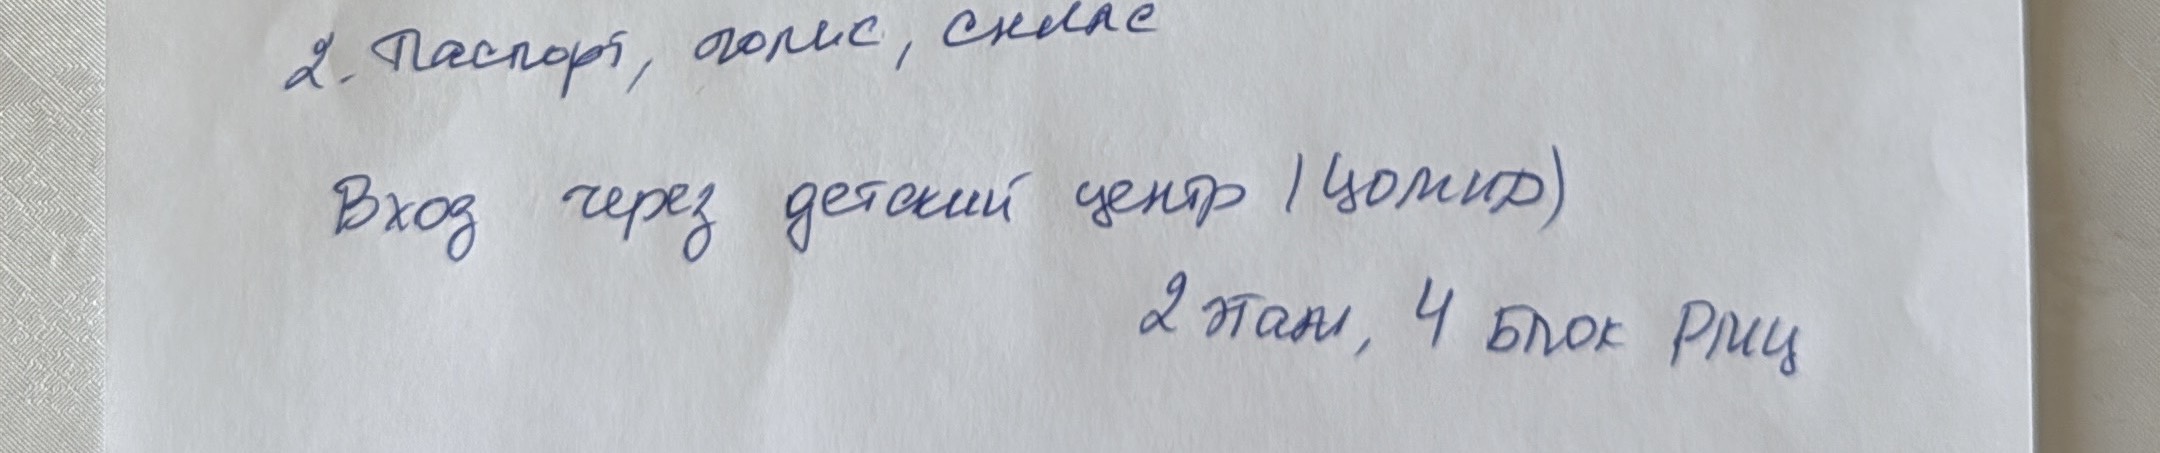 2. Паспорт, полис, снилс
Вход через детский центр (ЦОМИД)
2 этаж, 4 блок РМЦ